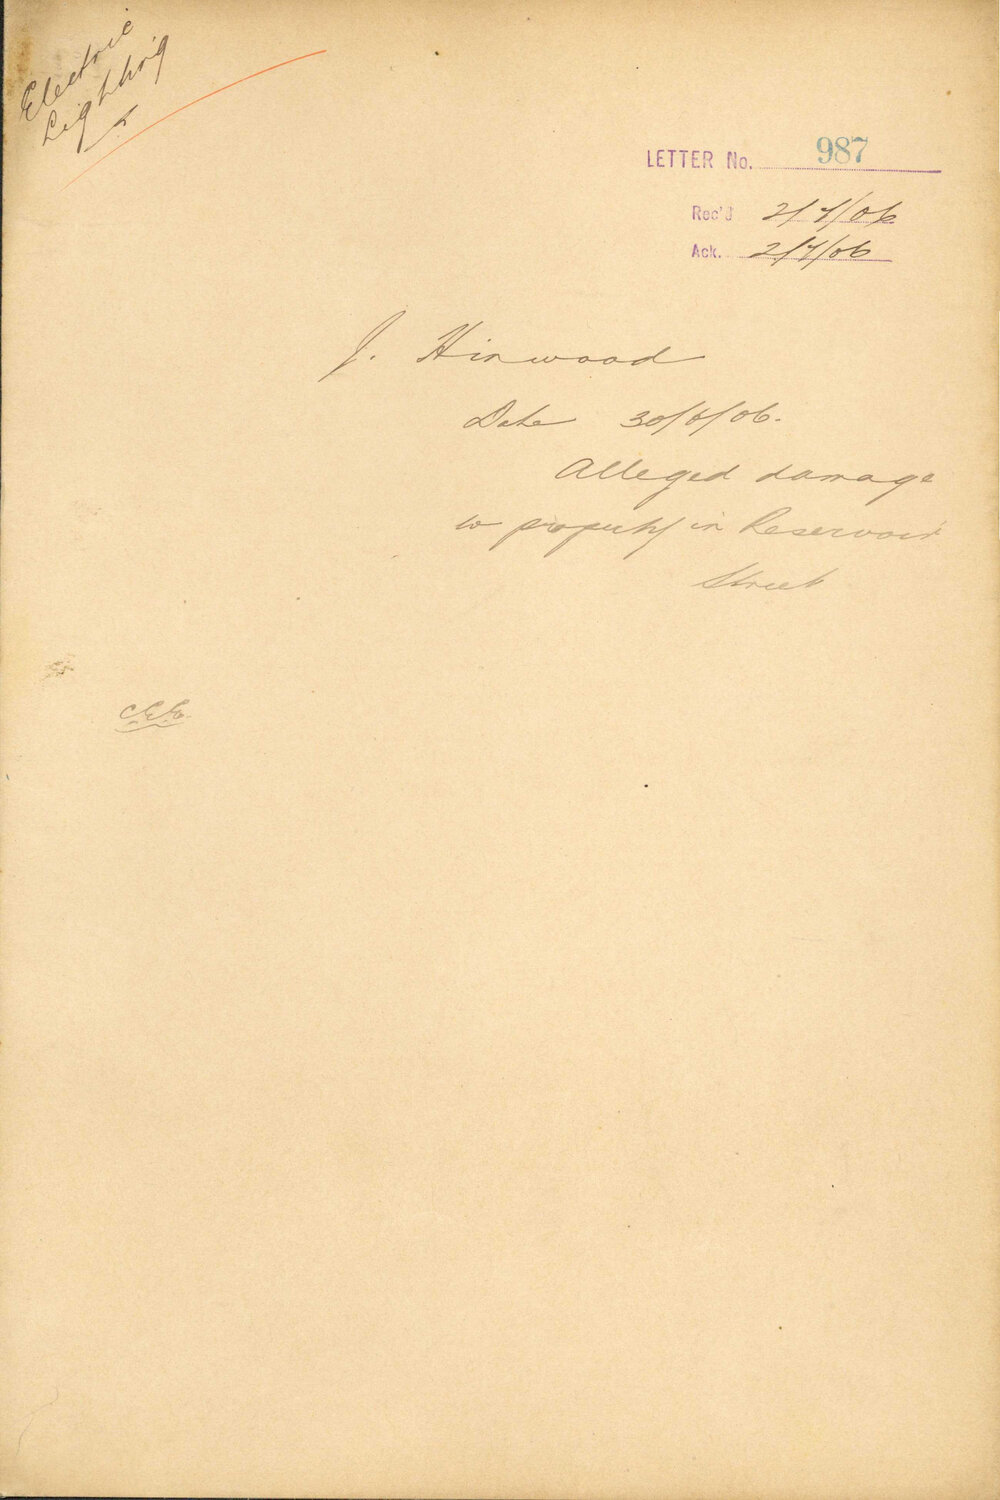 Electric
Lighting
LETTER No. 987
Rec'd 2/7/06
Ack. 2/7/06
J. Hinwood
Date 30/6/06.
Alleged damage
to property in Reservoir
Street